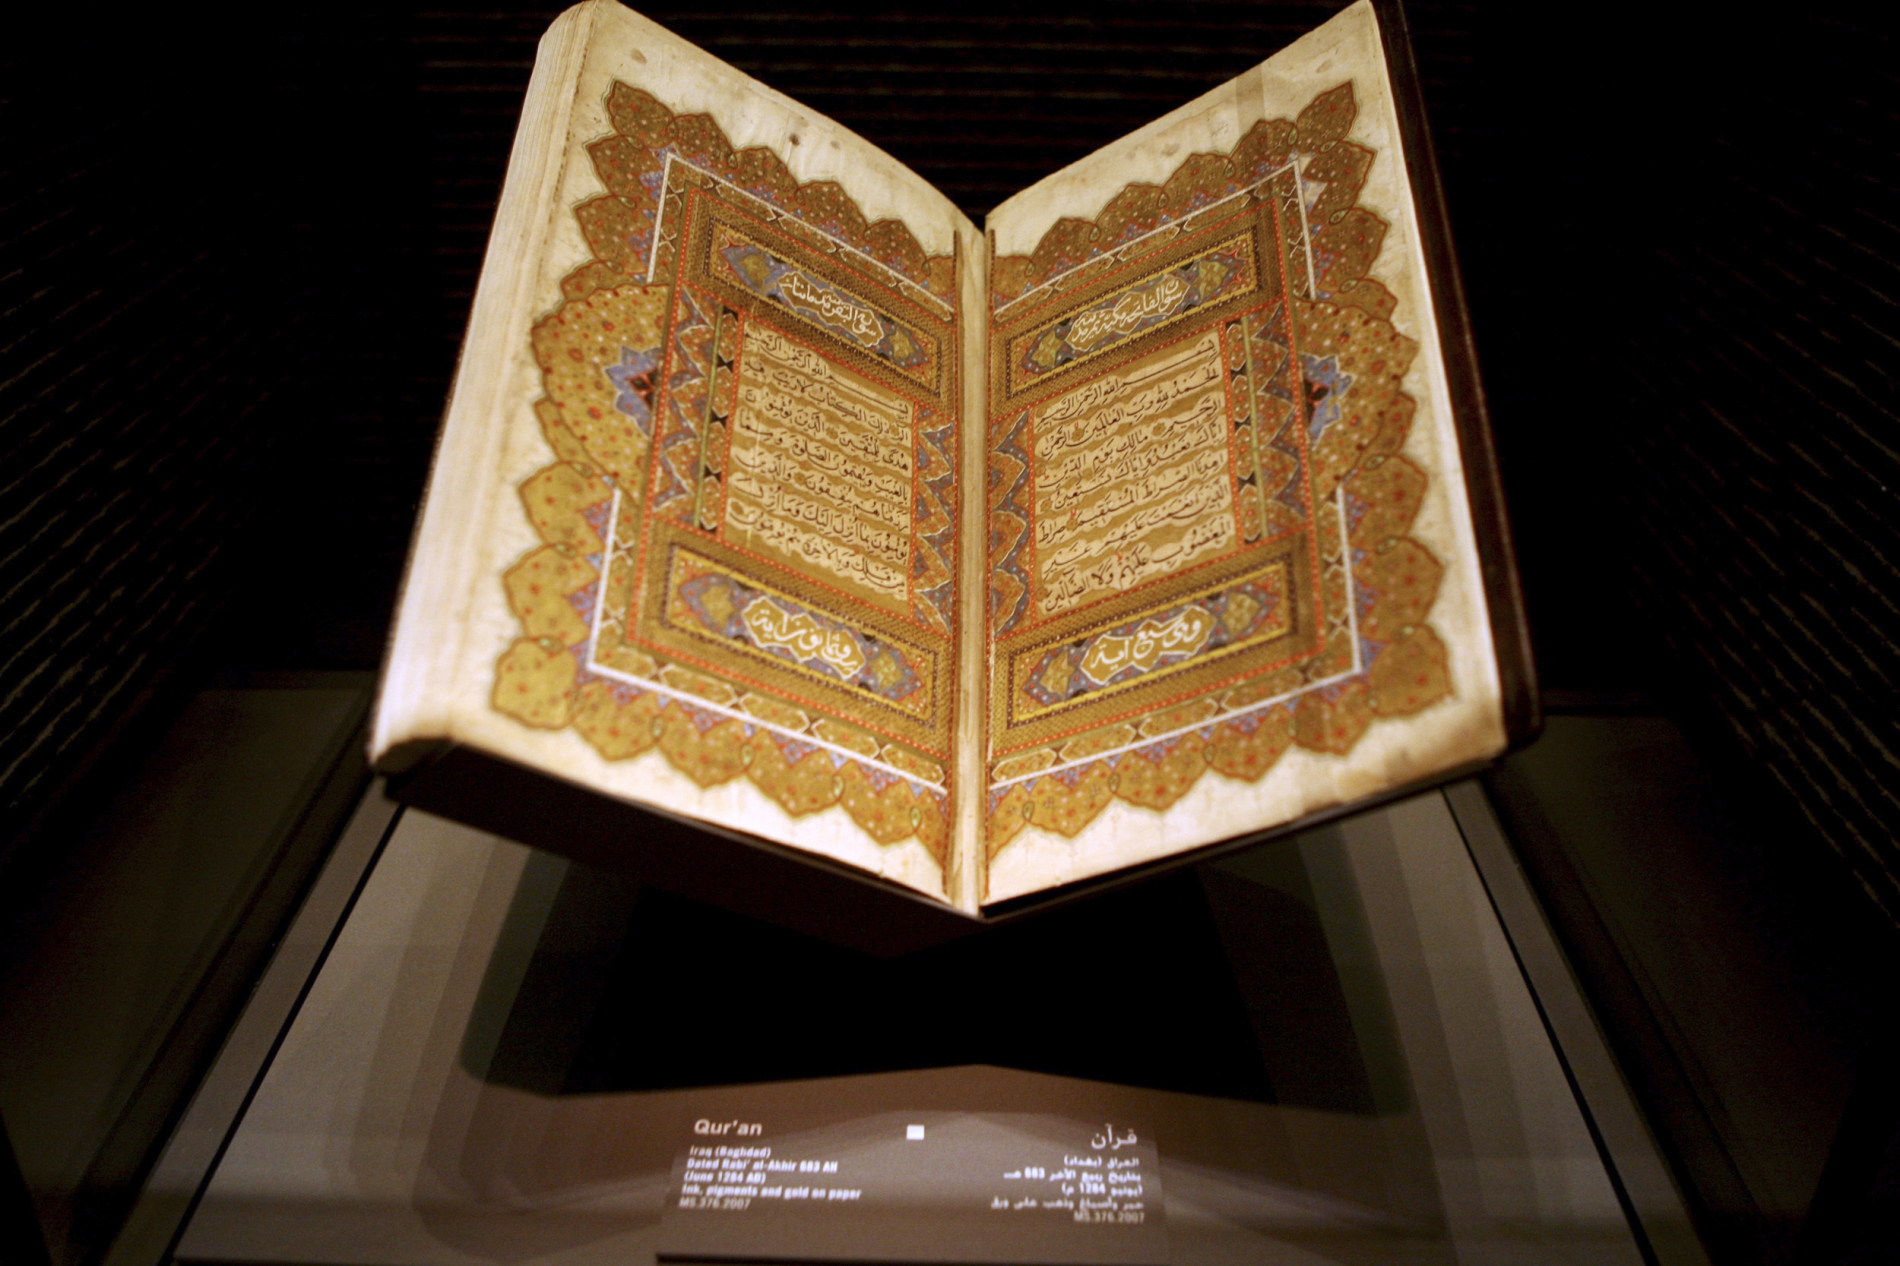 سورة الفاتحة مكية
بسم الله الرحمن الرحيم
الحمد لله رب العالمين الرحمن
الرحيم مالك يوم الدين
اياك نعبد واياك نستعين
اهدنا الصراط المستقيم صراط
الذين انعمت عليهم غير
المغضوب عليهم ولا الضالين
وهي سبع آية
سورة البقرة مايتا
بسم الله الرحمن الرحيم
الم ذلك الكتاب لا ريب فيه
هدى للمتقين الذين يؤمنون
بالغيب ويقيمون الصلوة ومما
رزقناهم ينفقون والذين
يؤمنون بما انزل اليك وما انزل
من قبلك وبالاخرة هم يوقنون
آية
Qur'an
Iraq (Baghdad)
Dated Rabi' al-Akhir 683 AH
(June 1284 AD)
Ink, pigments and gold on paper
MS.376.2007
قرآن
العراق (بغداد)
بتاريخ ربيع الآخر 683 هـ
(يونيو 1284 م)
حبر وأصباغ وذهب على ورق
MS.376.2007